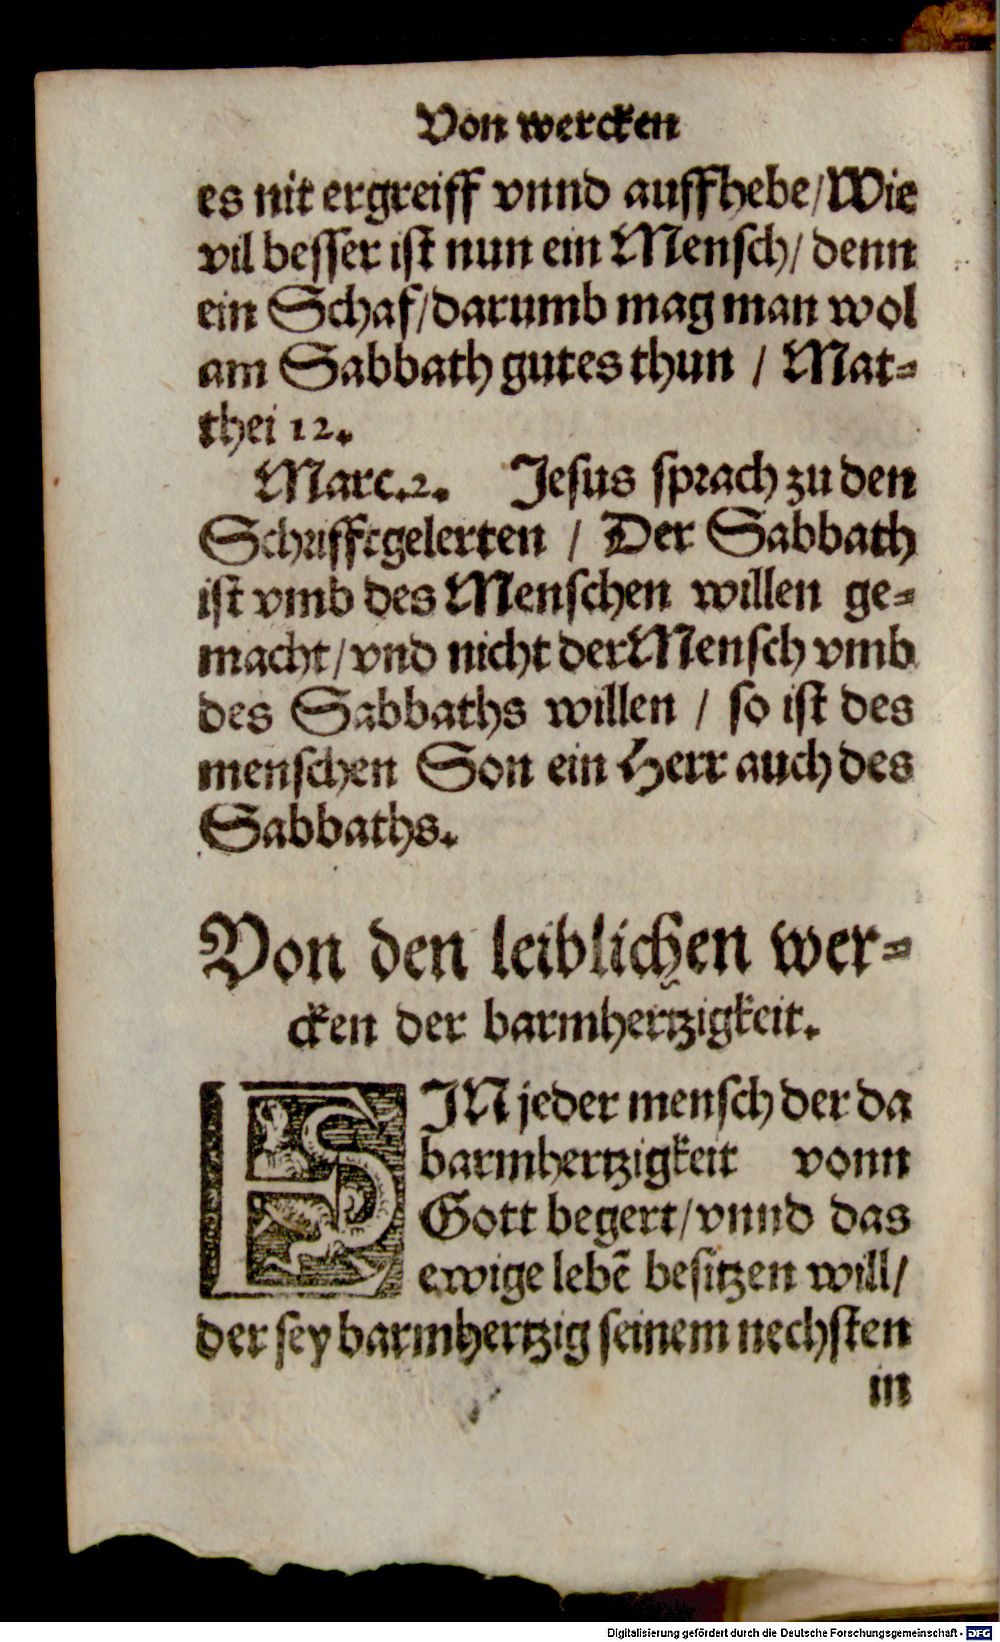 Von wercken
es nit ergreiff vnnd auffhebe/Wie
vil besser ist nun ein Mensch/ denn
ein Schaf/darumb mag man wol
am Sabbath gutes thun / Mat-
thei 12.
Marc.2. Jesus sprach zu den
Schrifftgelerten / Der Sabbath
ist vmb des Menschen willen ge-
macht/vnd nicht der Mensch vmb
des Sabbaths willen / so ist des
menschen Son ein Herr auch des
Sabbaths.
Von den leiblichen wer-
cken der barmhertzigkeit.
EIN jeder mensch der da
barmhertzigkeit vonn
Gott begert/vnnd das
ewige lebē besitzen will/
der sey barmhertzig seinem nechsten
in
Digitalisierung gefördert durch die Deutsche Forschungsgemeinschaft - DFG